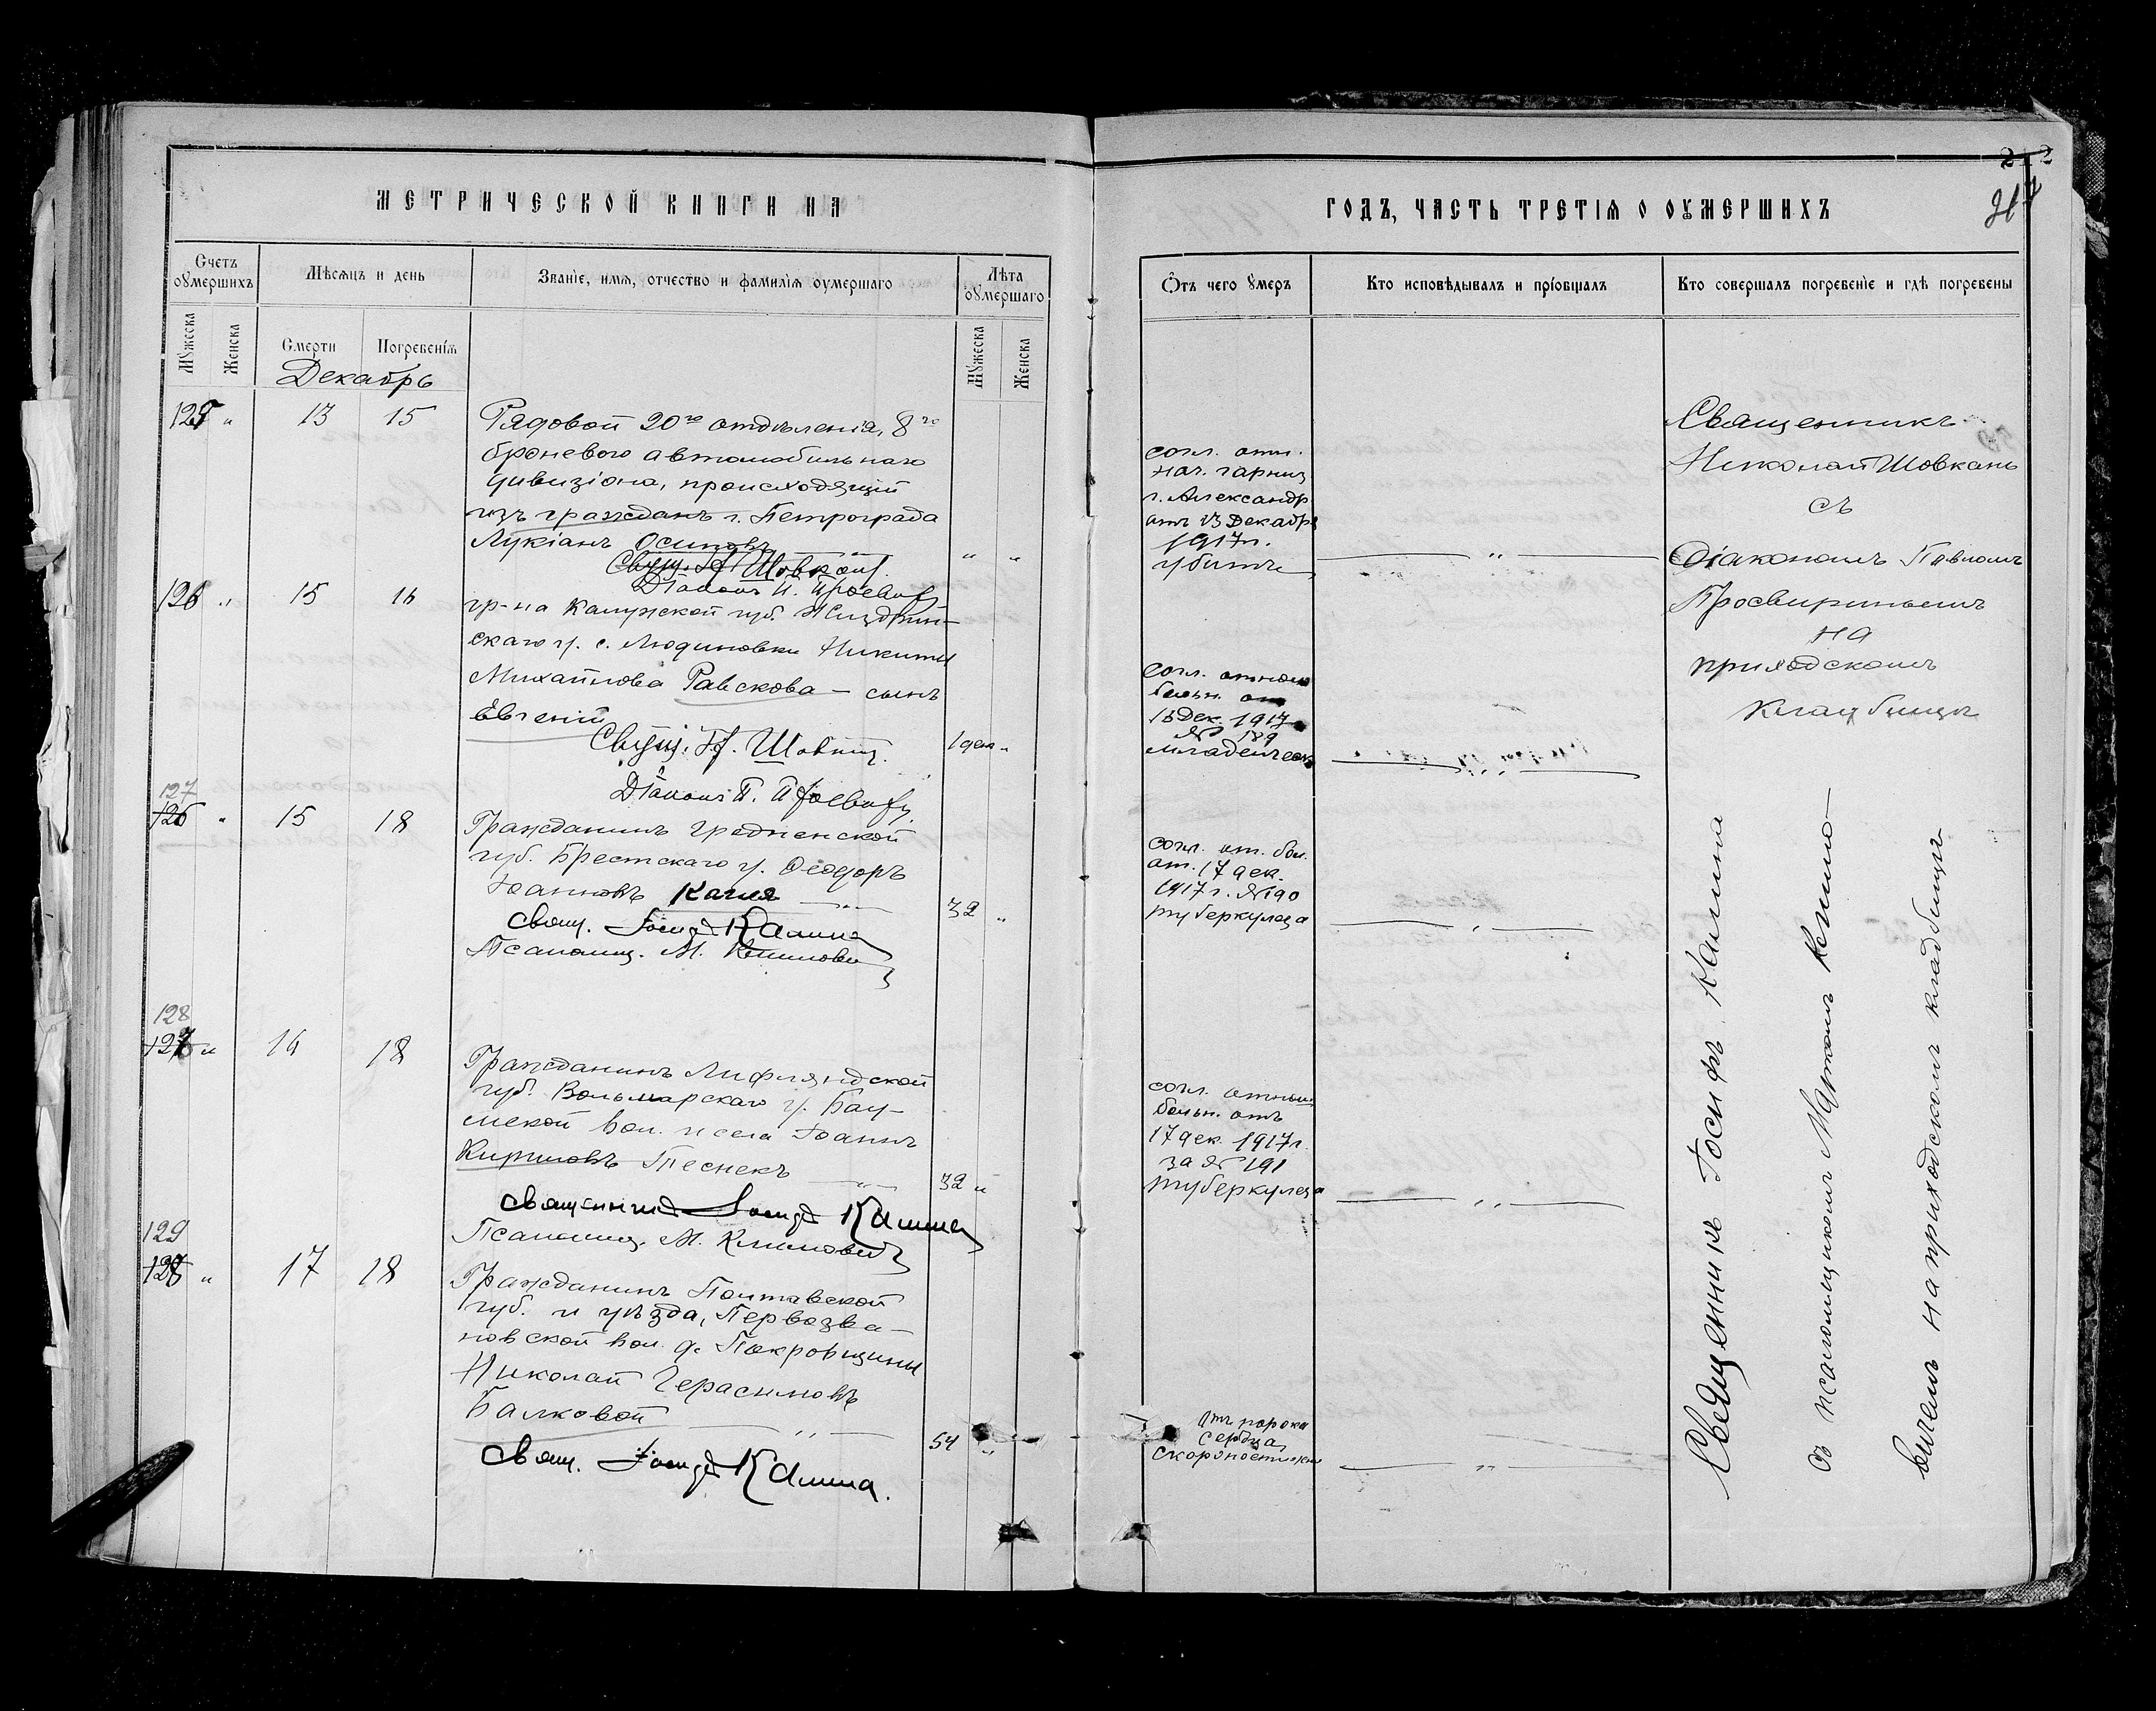 МЕТРИЧЕСКОЙ КНИГИ НА
Счетъ оумершихъ
Мѣсяцъ и день
Званіе, имя, отчество и фамилія оумершаго
Лѣта оумершаго
Мужеска
Женска
Смерти
Погребенія
Мужеска
Женска
Декабрь
125 " 13 15
Рядовой 20го отдѣленія, 8го
броневого автомобильнаго
дивизіона, происходящій
изъ гражданъ г. Петрограда
Лукіанъ Осиповъ " "
Свящ. Н. Шовкань
Діаконъ П. Просвир
126 " 15 16
гр-на Калужской губ. Жиздрин-
скаго у. с. Людиновки Никиты
Михайлова Равскова — сынъ
Евгеній
Свящ. Н. Шовкан 1 дня "
Діаконъ П. Просвир
127
126 " 15 18
Гражданинъ Гродненской
губ. Брестскаго у. Ѳеодоръ
Іоанновъ Качля
32 "
Свящ. Іосифъ Калина
Псаломщ. М. Климович
128
127 " 16 18
Гражданинъ Лифляндской
губ. Вольмарскаго у. Бау-
нской вол. и села Іоаннъ
Кирилловъ Песнекъ
32 "
Священникъ Іосифъ Калина
Псаломщ. М. Климович
129
128 " 17 18
Гражданинъ Полтавской
губ. и уѣзда, Первозва-
новской вол. д. Покровщины
Николай Герасимовъ
Балковой
54 "
Свящ. Іосифъ Калина.
ГОДЪ, ЧАСТЬ ТРЕТІЯ О ОУМЕРШИХЪ
212
Отъ чего умеръ
Кто исповѣдывалъ и пріобщалъ
Кто совершалъ погребеніе и гдѣ погребены
согл. отн.
нач. гарниз
г. Александр
отъ 13 Декабря
1917 г.
убитъ
"
согл. отнош
больн. от
16 Дек. 1917
№ 189
младенческ
"
согл. от. бол.
от. 17 дек.
1917 г. № 190
туберкулеза
"
согл. отнош
больн. отъ
17 дек. 1917 г.
за № 191
туберкулеза
"
Отъ порока
сердца,
скоропостижно
"
Священникъ
Николай Шовкань
съ
Діакономъ Павломъ
Просвиринымъ
на
приходскомъ
кладбищѣ
Священникъ Іосифъ Калина
съ псаломщикомъ Маркомъ Климо-
вичемъ на приходскомъ кладбищѣ